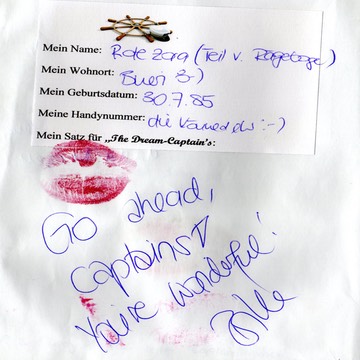 Mein Name: Rote Zora (Teil v.
Mein Wohnort:
Mein Geburtsdatum: 30.7.85
Meine Handynummer: die :-)
Mein Satz für „The Dream-Captain's:
Go ahead,
Captains
You're wonderful!